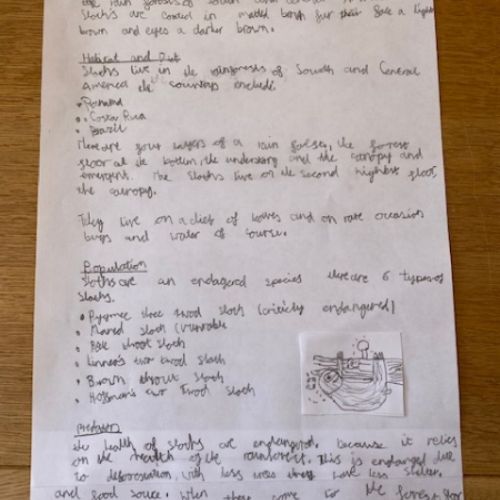 the rain forests of South and Central
Sloths are coated in matted brown fur their face a light
brown and eyes a darker brown.
Habitat and Diet
Sloths live in the rainforests of South and Central
America the countrys include:
• Panama
• Costa Rica
• Brazil
There are four layers of a rain forest, the forest
floor at the bottom, the understory and the canopy and
emergent. The Sloths live on the second highest floor,
the canopy.
They live on a diet of leaves and on rare occasion
bugs and water of course.
Population
Sloths are an endagered species there are 6 types of
Sloths.
• three toed sloth (criticly endangered)
• Maned sloth (vunrable
• Pale throat sloth
• Linner's two toed sloth
• Brown throut sloth
• Hoffman's two toed sloth
the health of sloths are endangered, because it relies
on the health of the rainforest. This is endangered due
to deforestation, with less trees they have less shelter
and food source. When they come to the forest floor